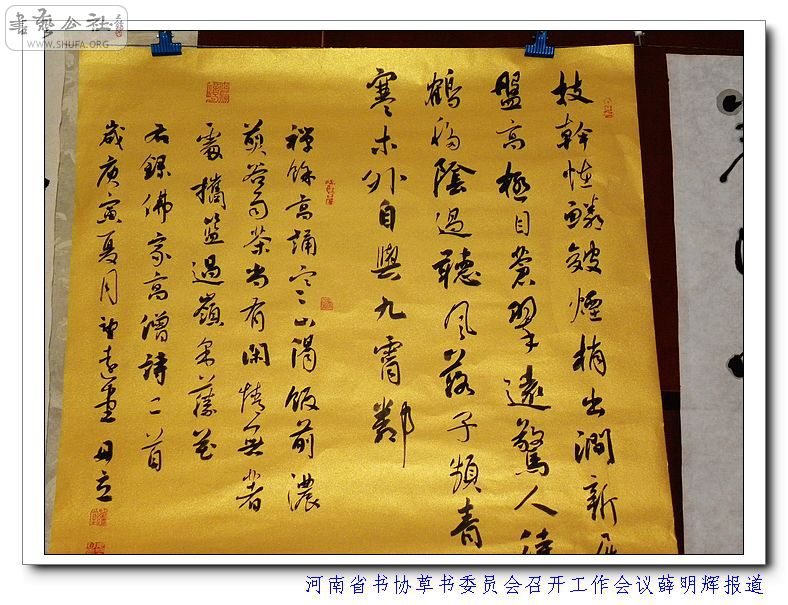 書藝公社
WWW.SHUFA.ORG
枝幹恠鱗皴煙梢出澗新屈
盤高極目蒼翠遠驚人待
鶴移陰過聽風落子頻青
寒木外自與九霄鄰
禪餘高誦寒山偈飯前濃
煎谷雨茶尚有閑情無著
處攜籃過嶺采藤花
右錄佛家高僧詩二首
歲庚寅夏月
河南省书协草书委员会召开工作会议薛明辉报道